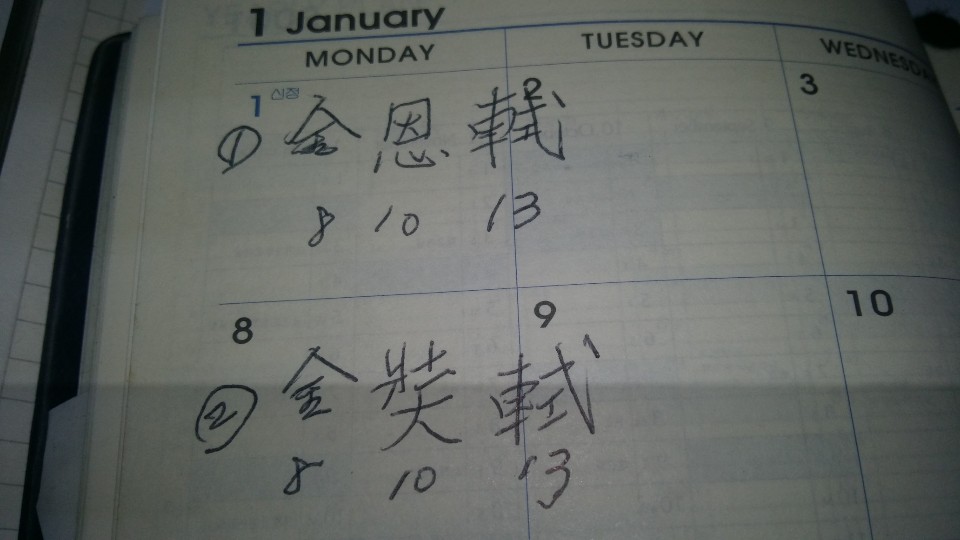 1 January
MONDAY TUESDAY WEDNESDA
1 신정 2 3
① 金 恩 軾
8 10 13
8 9 10
② 金 奘 軾
8 10 13